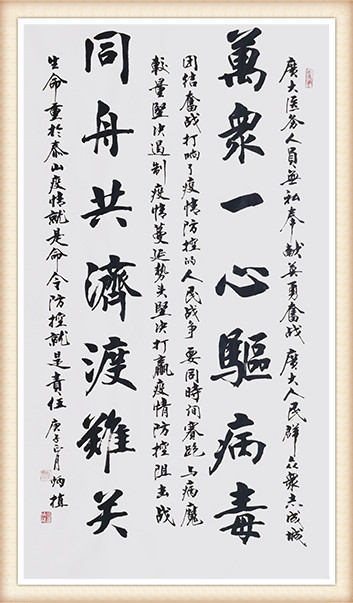 廣大医务人員無私奉献英勇奮战廣大人民群众衆志成城
萬衆一心驅病毒
团结奮战打响了疫情防控的人民战争要同時间賽跑与病魔
較量堅决遏制疫情蔓延势头堅决打贏疫情防控阻击战
同舟共濟渡難关
生命重於泰山疫情就是命令防控就是責任庚子正月炳植